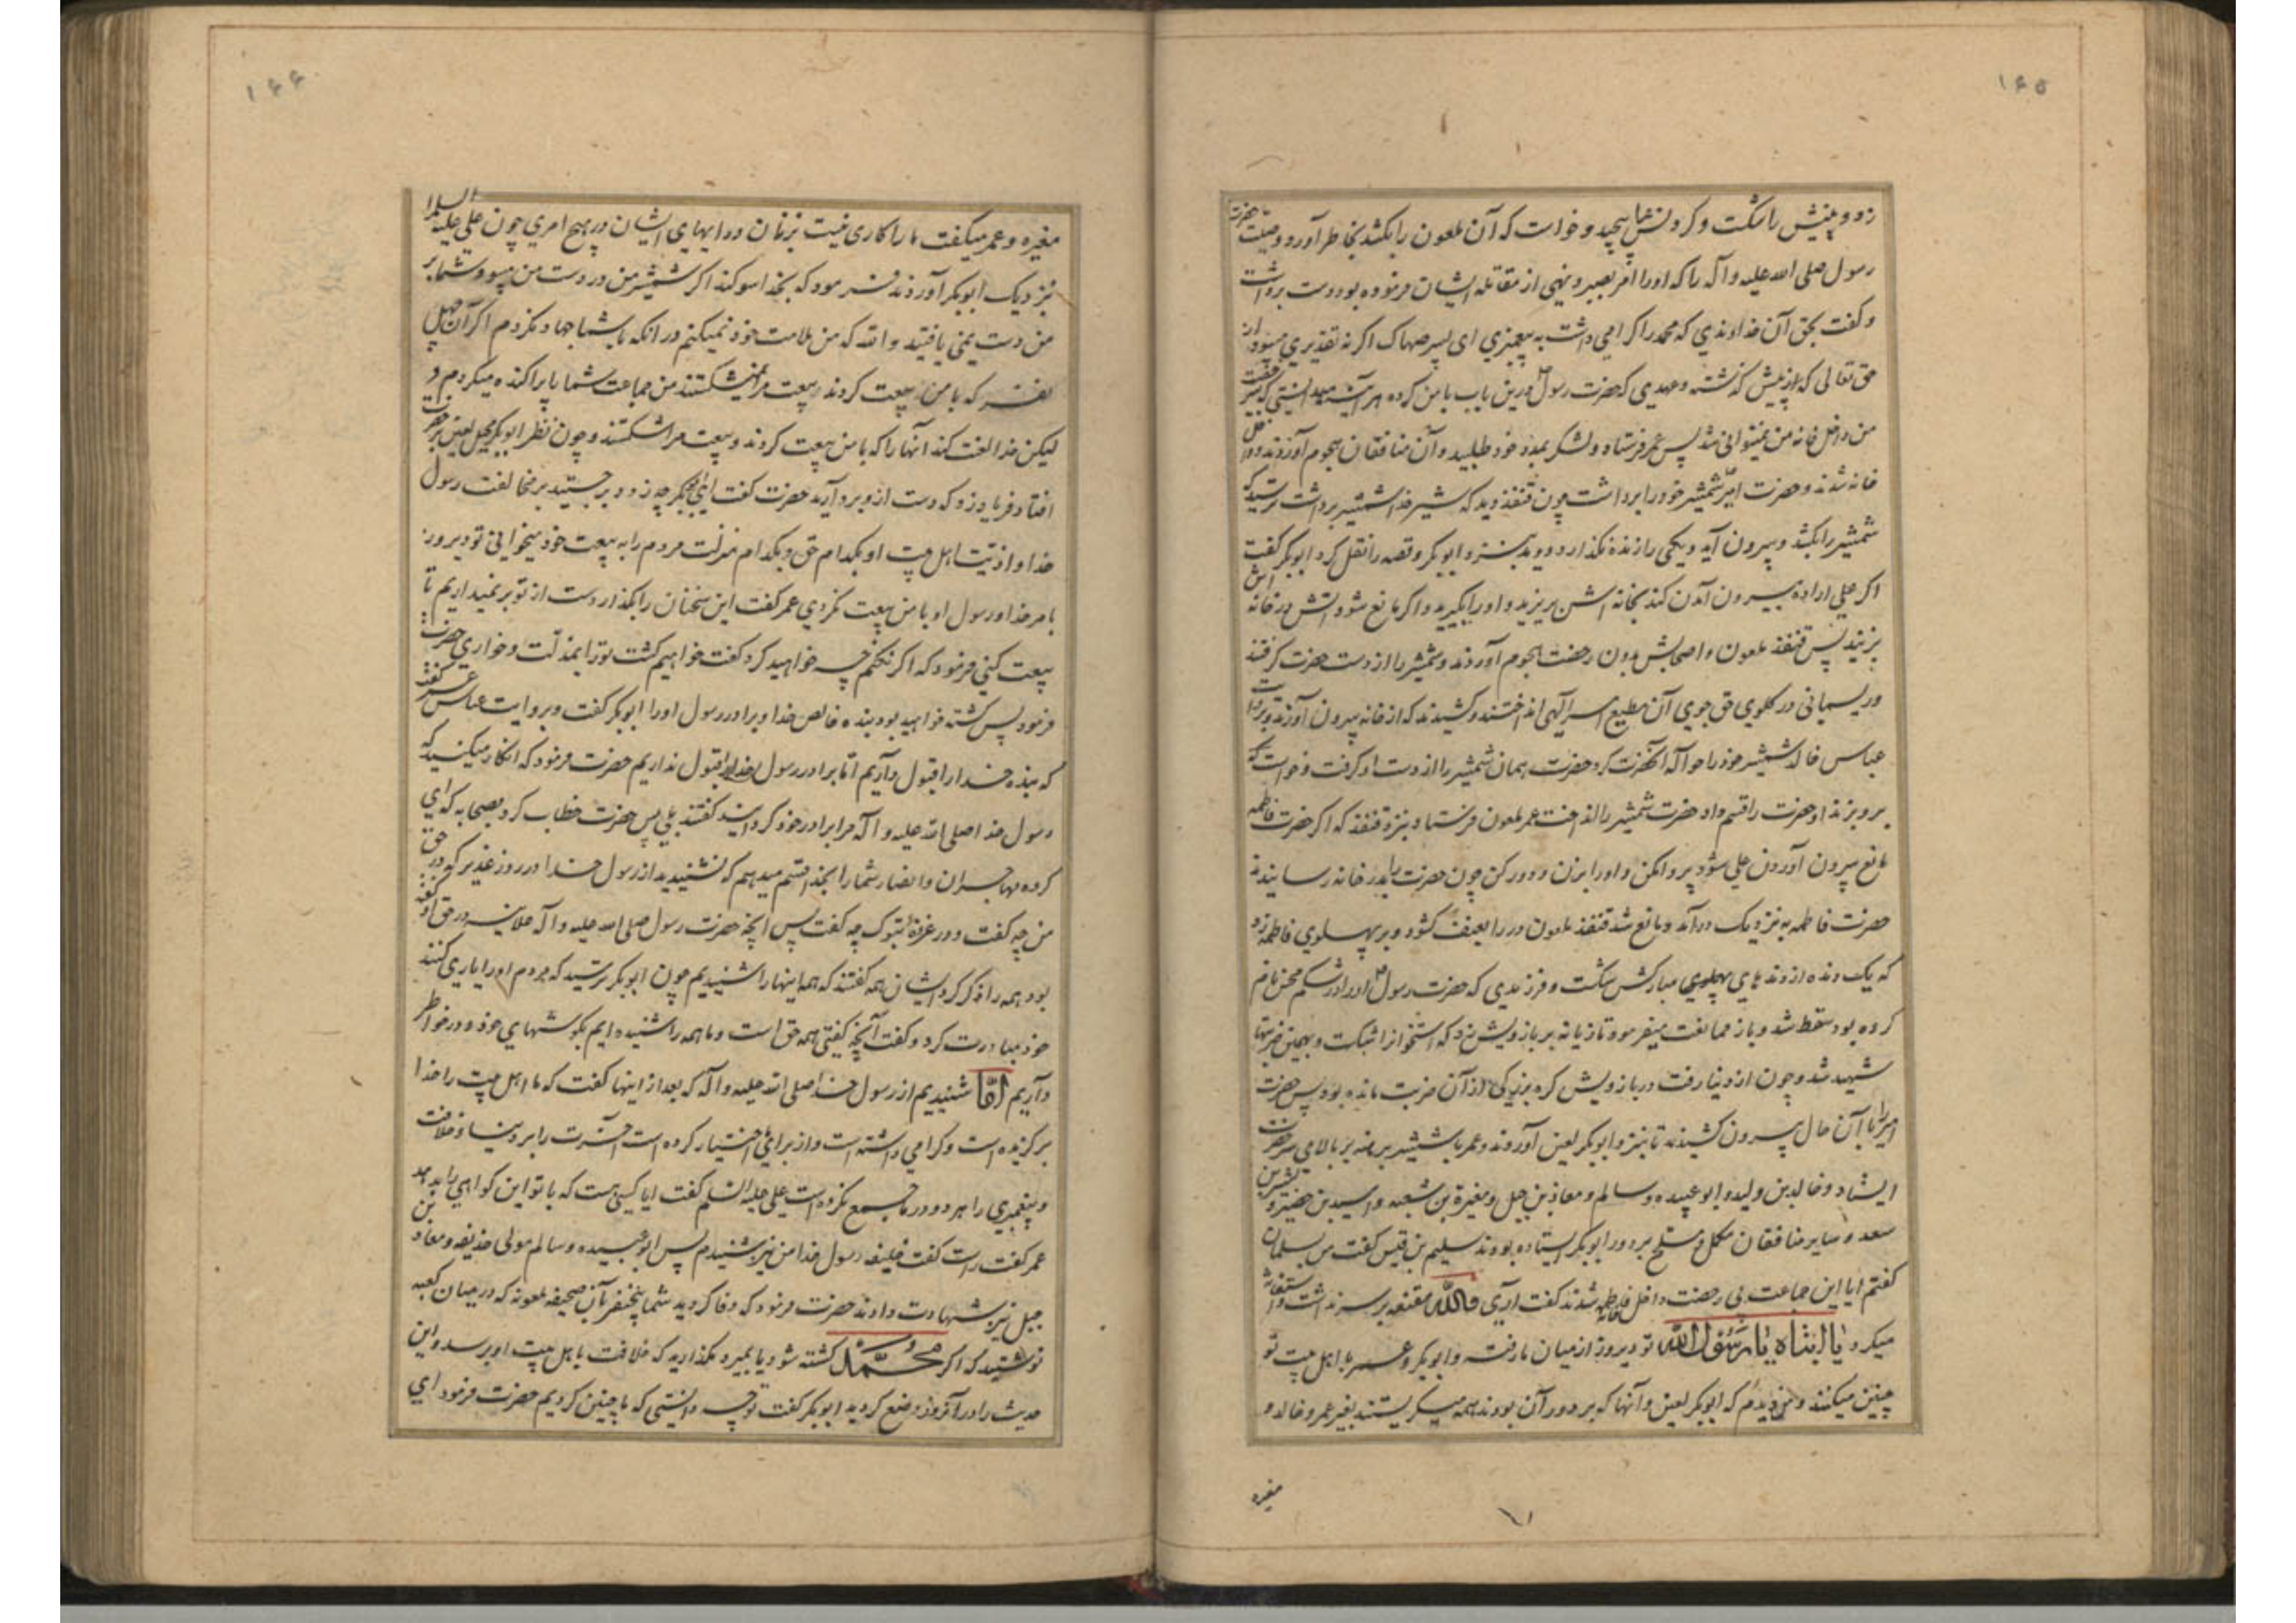 ۱۶۵
زد و بینیش را شکست و گردنش را پیچید و خواست که آن ملعون را بکشد بخاطر آورد وصیت حضرت
رسول صلی الله علیه و آله را که او را امر بصبر و نهی از مقاتله ایشان فرموده بود دست برداشت
و گفت بحق آن خداوندی که محمد را گرامی داشت به پیغمبری ای پسر صهاک اگر نه تقدیری میبود از
حق تعالی که از پیش گذشته و عهدی که حضرت رسول درین باب با من کرده هر آینه میدانستی که بی رخصت
من داخل خانه من نمیتوانی شد پس عمر فرستاد و لشکر بمدد خود طلبید و آن منافقان هجوم آوردند و داخل
خانه شدند و حضرت امیر شمشیر خود را برداشت چون قنفذ دید که شیر خدا شمشیر برداشت ترسید که
شمشیر را بکشد و بیرون آید و یکی را زنده نگذارد دوید بنزد ابوبکر و قصه را نقل کرد ابوبکر گفت
اگر علی اراده بیرون آمدن کند بخانه اش بریزید و او را بگیرید و اگر مانع شود آتش در خانه اش
بزنید پس قنفذ ملعون و اصحابش بدون رخصت هجوم آوردند و شمشیر را از دست حضرت گرفتند
و ریسمانی در گلوی حق جوی آن مطیع امر الهی انداختند و کشیدند که از خانه بیرون آورند و بروایت
عباس خالد شمشیر خود را حواله آنحضرت کرد حضرت همان شمشیر را از دست او گرفت و خواست که
بر و بزند او حضرت را قسم داد حضرت شمشیر را انداخت عمر ملعون فرستاد بنزد قنفذ که اگر حضرت فاطمه
مانع بیرون آوردن علی شود پروا مکن و او را بزن و دور کن چون حضرت را بدر خانه رسانیدند
حضرت فاطمه به نزدیک در آمد و مانع شد قنفذ ملعون در را بعنف گشود و بر پهلوی فاطمه زد
که یک دنده از دندهای پهلوی مبارکش شکست و فرزندی که حضرت رسول او را در شکم محسن نام
کرده بود سقط شد و باز ممانعت میفرمود تازیانه بر بازویش زد که استخوانرا شکست و بهمین ضربتها
شهید شد و چون از دنیا رفت در بازویش گره بزرگی از آن ضربت مانده بود پس حضرت
امیر را با آن حال بیرون کشیدند تا بنزد ابوبکر لعین آوردند و عمر با شمشیر برهنه بر بالای سر حضرت
ایستاد و خالد بن ولید و ابو عبیده و سالم و معاذ بن جبل و مغیرة بن شعبه و اسید بن حضیر و بشر بن
سعد و سایر منافقان مکمل و مسلح بر دور ابوبکر ایستاده بودند سلیم بن قیس گفت من بسلمان
گفتم ایا این جماعت بی رخصت داخل خانه فاطمه شدند گفت آری والله مقنعه بر سر نداشت و استغاثه
میکرد یا ابتاه یا رسول الله تو دیروز از میان ما رفتی و ابوبکر و عمر با اهل بیت تو
چنین میکنند و من دیدم که ابوبکر لعین و آنها که بر دور آن بودند همه میگریستند بغیر عمر و خالد و
مغیره
۱۶۶
مغیره و عمر میگفت ما را کاری نیست بزنان و رایهای ایشان در هیچ امری چون علی علیه السلام
نزدیک ابوبکر آوردند فرمود که بخدا سوگند اگر شمشیر من در دست من میبود شما بر
من دست نمی یافتید و الله که من ملامت خود نمیکنم در انکه با شما جهاد نکردم اگر آن چهل
نفر که با من بیعت کردند بیعت مرا نمیشکستند من جماعت شما را پراکنده میکردم و
لیکن خدا لعنت کند آنها را که با من بیعت کردند و بیعت مرا شکستند و چون نظر ابوبکر لعین بر حضرت
افتاد فریاد زد که دست ازو بردارید حضرت گفت ای ابوبکر چه زود برجستید بر مخالفت رسول
خدا و اذیت اهل بیت او بکدام حق و بکدام منزلت مردم را به بیعت خود میخوانی تو دیروز
بامر خدا و رسول او با من بیعت نکردی عمر گفت این سخنان را بگذار دست از تو برنمیداریم تا
بیعت کنی فرمود که اگر نکنم چه خواهید کرد گفت خواهیم کشت تو را بمذلت و خواری حضرت
فرمود پس کشته خواهید بود بنده خالص خدا و برادر رسول او را ابوبکر گفت و بروایت عباس عمر گفت
که بنده خدا را قبول داریم اما برادر رسول خدا را قبول نداریم حضرت فرمود که انکار میکنید که
رسول خدا صلی الله علیه و آله مرا برادر خود گردانید گفتند بلی پس حضرت خطاب کرد بصحابه که ای
گروه مهاجران و انصار شما را بخدا قسم میدهم که نشنیدید از رسول خدا در روز غدیر که در حق
من چه گفت و در غزوه تبوک چه گفت پس آنچه حضرت رسول صلی الله علیه و آله علانیه در حق او گفته
بود همه را ذکر کرد ایشان همه گفتند که همه اینها را شنیدیم چون ابوبکر ترسید که مردم او را یاری کنند
خود مبادرت کرد و گفت آنچه گفتی همه حق است و ما همه را شنیده ایم بگوشهای خود و در خواطر
داریم امّا شنیدیم از رسول خدا صلی الله علیه و آله که بعد از اینها گفت که ما اهل بیت را خدا
برگزیده است و گرامی داشته است و از برای ما اختیار کرده است آخرت را بر دنیا و خلافت
و پیغمبری را هر دو در ما جمع نکرده است علی علیه السلم گفت ایا کسی هست که با تو این گواهی را بدهد
عمر گفت راست گفت خلیفه رسول خدا من نیز شنیدم پس ابو عبیده و سالم مولی حذیفه و معاذ بن
جبل نیز شهادت دادند حضرت فرمود که وفا کردید شما پنج نفر بآن صحیفه ملعونه که در میان کعبه
نوشتید که اگر محمّد کشته شود یا بمیرد نگذارید که خلافت باهل بیت او برسد و این
حدیث را در آنروز وضع کردید ابوبکر گفت تو چه دانستی که ما چنین کردیم حضرت فرمود ای